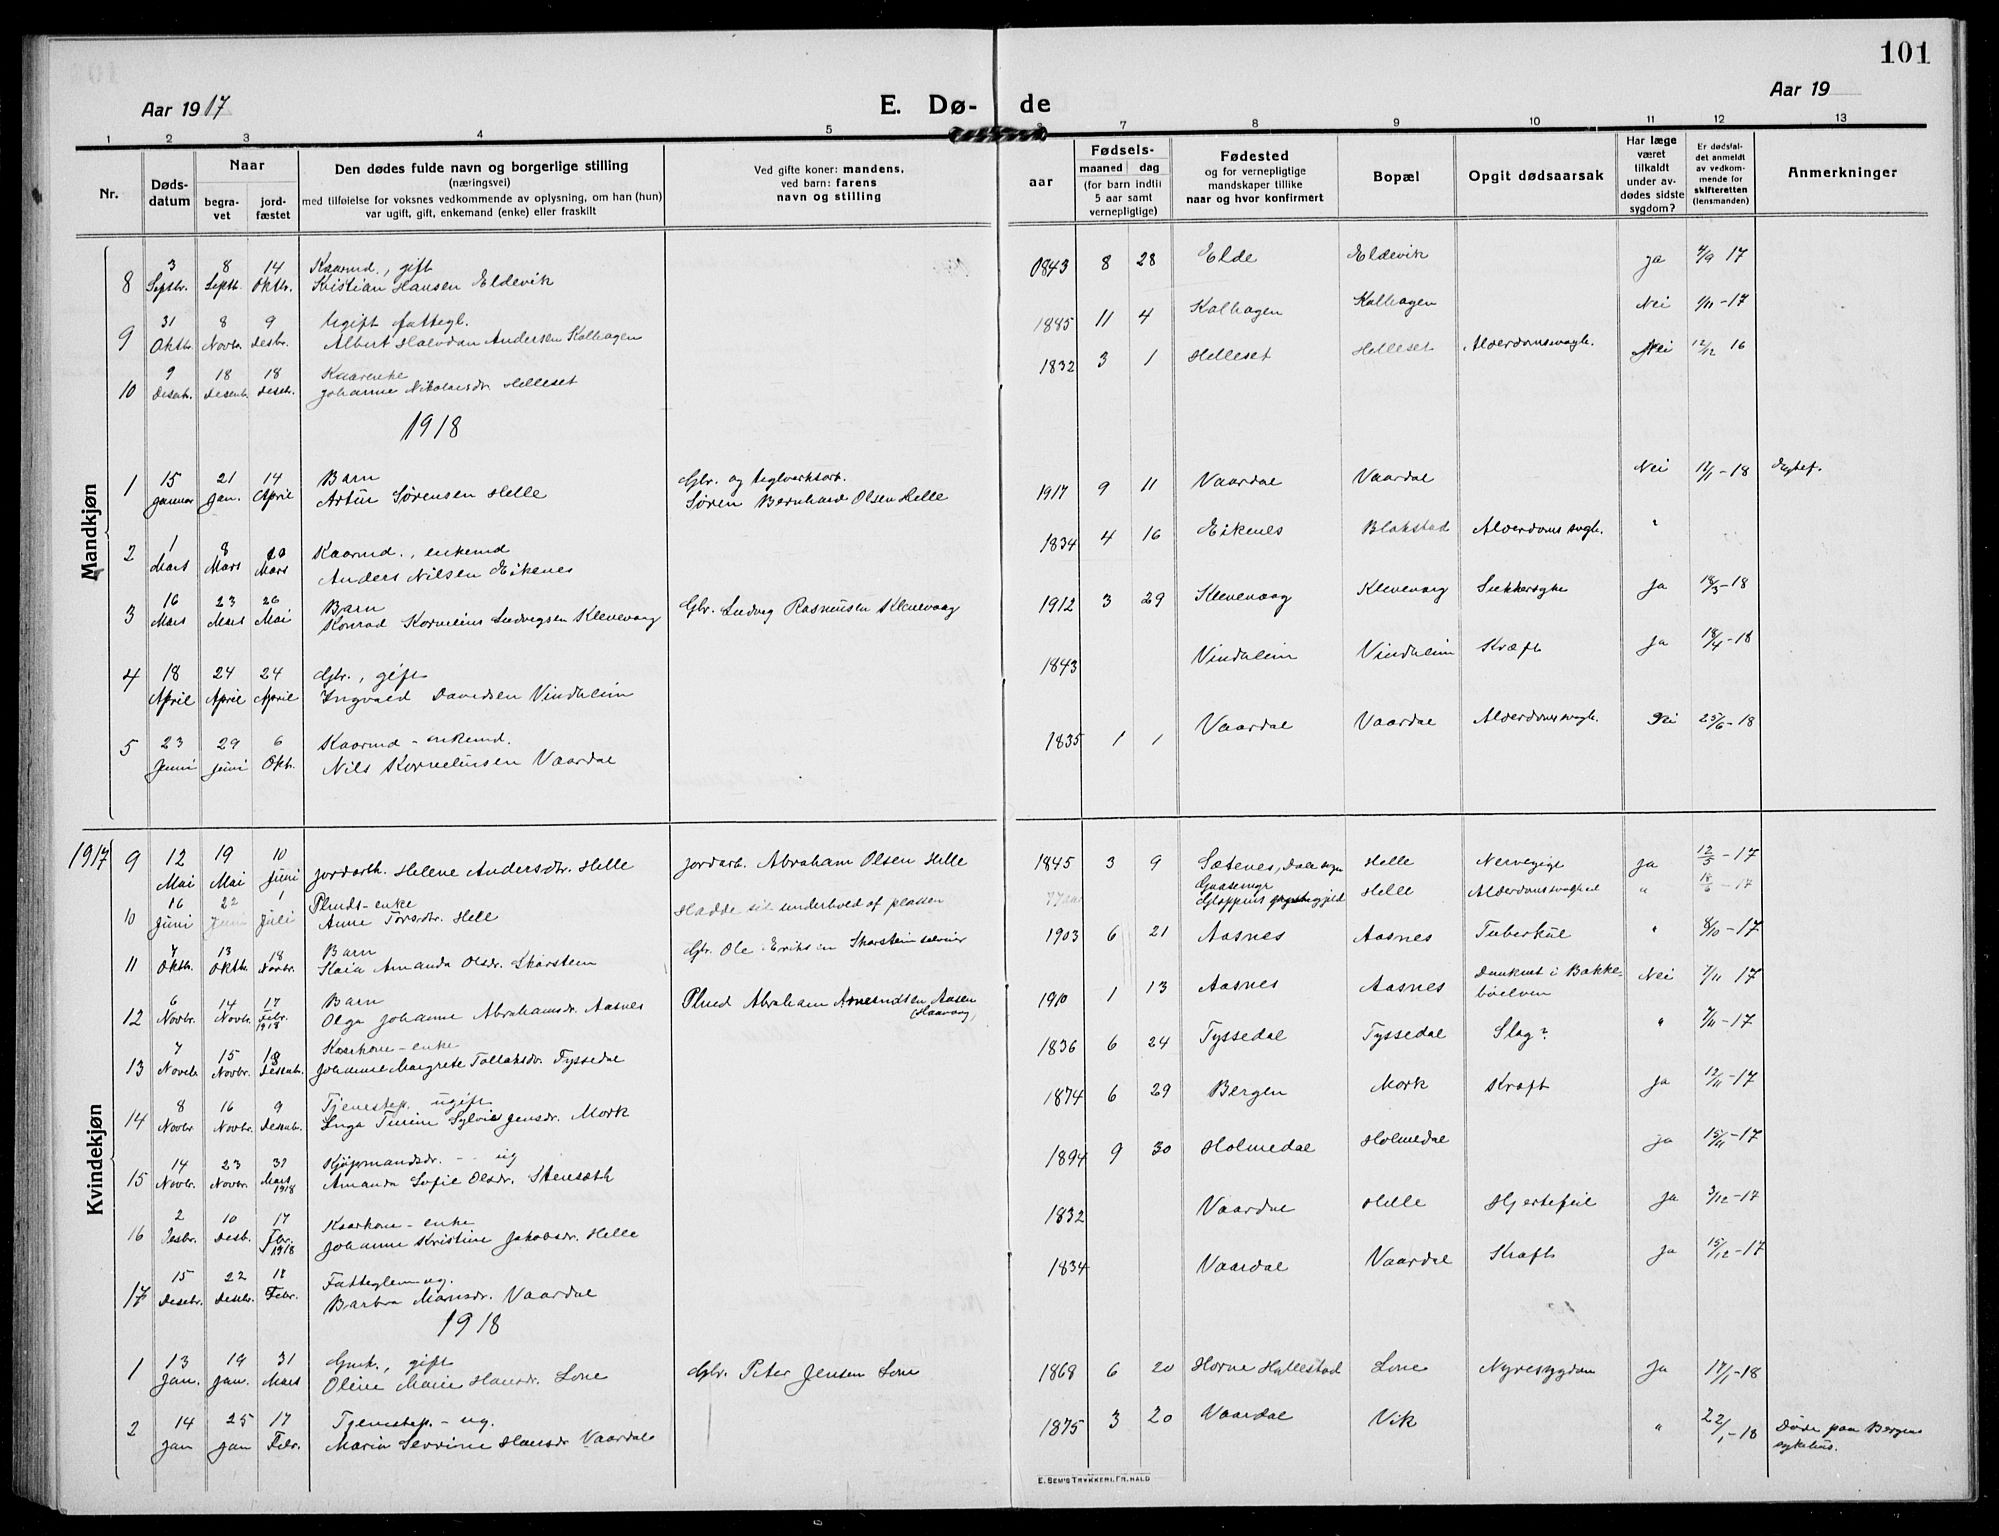 101
Aar 1917
E. Dø-
de
Aar 19
1 2 3 4 5 6 7 8 9 10 11 12 13
Nr.
Dødsdatum
Naar
begravet
jordfæstet
Den dødes fulde navn og borgerlige stilling
(næringsvei)
med tilføielse for voksnes vedkommende av oplysning, om han (hun)
var ugift, gift, enkemand (enke) eller fraskilt
Ved gifte koner: mandens,
ved barn: farens
navn og stilling
aar
Fødsels-
maaned dag
(for barn indtil
5 aar samt
vernepligtige)
Fødested
og for vernepligtige
mandskaper tillike
naar og hvor konfirmert
Bopæl
Opgit dødsaarsak
Har læge
været
tilkaldt
under av-
dødes sidste
sygdom?
Er dødsfal-
det anmeldt
av vedkom-
mende for
skifteretten
(lensmanden)
Anmerkninger
Mandkjøn
8 3 Septbr. 8 Septb. 14 Oktbr. Kaarmd., gift
Kristian Hansen Eldevik
1843 8 28 Elde Eldevik ja 4/9 17
9 31 Oktbr. 8 Novbr. 9 Desbr. Ugift fattegl.
Albert Halvdan Andersen Kalhagen
1885 11 4 Kalhagen Kalhagen Nei 1/11-17
10 9 Desbr. 18 Desenbr. 18 Desebr. Kaarenke
Johanne Nikolaisdr. Helleset
1832 3 1 Helleset Helleset Alderdomssvagh. Nei 12/12 16
1918
1 15 Januar 21 Jan. 14 April Barn
Artur Sørensen Helle
Gbr. og teglverksarb.
Søren Bernhard Olsen Helle
1917 9 11 Vaardal Vaardal Nei 17/1-18
2 1 Mars 8 Mars 20 Mars Kaarmd., enkemd
Anders Nilsen Eikenes
1834 4 16 Eikenes Blakstad Alderdoms svagh. "
3 16 Mars 23 Mars 26 Mai Barn
Konrad Kornelius Ludvigsen Klevevaag
Gbr. Ludvig Rasmusen Klevevaag
1912 3 29 Klevevaag Klevevaag Sukkersyke Ja 18/3-18
4 18 April 24 April 24 April Gbr., gift
Ingvald Davidsen Vindheim
1843 Vindheim Vindheim Kræft Ja 18/4-18
5 23 Juni 29 Juni 6 Okt. Kaarmd - enkemd.
Nils Korneliusen Vaardal
1835 1 1 Vaardal Vaardal Alderdomssvagh. Nei 25/6-18
Kvindekjøn
1917
9 12 Mai 19 Mai 10 Juni Jordarb. Helene Andersdr. Helle
Jordarb. Abraham Olsen Helle
1845 3 9 Sætenes, Dale sogn Helle Nervegigt Ja 12/5-17
10 16 Juni 22 Juni 1 Juli Plmds-enke
Anne Torsdtr. Hell
Hadde sit underhold af plassen
77 aar Gloppens Helle Alderdomssvaghed " 18/6-17
11 7 Oktbr. 13 Oktbr. 18 Novbr. Barn
Kaia Amanda Olsdr. Skorstein
Gbr. Ole Eriksen
1903 6 21 Aasnes Aasnes Tuberkul " 8/10-17
12 6 Novbr. 14 Novbr. 17 Febr. 1918 Barn
Olga Johanne Abrahamsdr. Aasnes
Plmd Abraham Aasen
1910 1 13 Aasnes Aasnes Druknet i Bakke-
bøelven Nei 7/11 17
13 7 Noveb. 15 Novbr. 18 Desenb. Kaarkone - enke
Johanne Margrete Tollaksdr. Tyssedal
1836 6 24 Tyssedal Tyssedal Slag? " 7/11-17
14 8 Novbr. 16 Novbr. 9 Desenbr. Tjenestep. ugift
Inga Turine Sylvia Jensdr. Mork
1874 6 29 Bergen Mork Kræft Ja 12/11-17
15 14 Novbr. 23 Novbr. 31 Mars 1918 Kjøpmandsdr. - - ug
Amanda Sofie Olsdr. Stensæth
1894 9 30 Holmedal Holmedal ja 15/11-17
16 2 Desbr. 10 Desb. 17 Febr. 1918 Kaarkone - enke
Johanne Kristine Jakobsdr. Helle
1832 Vaardal Helle Hjertefeil Ja 3/12-17
17 15 Desebr. 22 Desebr. 18 Febr. Fatteglem ug.
Barbra Monsdr. Vaardal
1834 Vaardal Vaardal Kræft Ja 15/12-17
1918
1 13 Jan. 19 Jan. 31 Mars Gmk., gift
Oline Marie Hansdr. Lone
Gbr. Peter Jensen Lone
1868 6 20 Horne Hallestad Lone Nyresygdom Ja 17/1-18
2 14 Jan 25 Jan 17 Febr. Tjenestep. - ug.
Maria Severine Hansdr Vaardal
1875 3 20 Vaardal Vik " 22/1-18 Døde paa Bergens
sykehus.
E. SEM'S TRYKKERI, FR.HALD